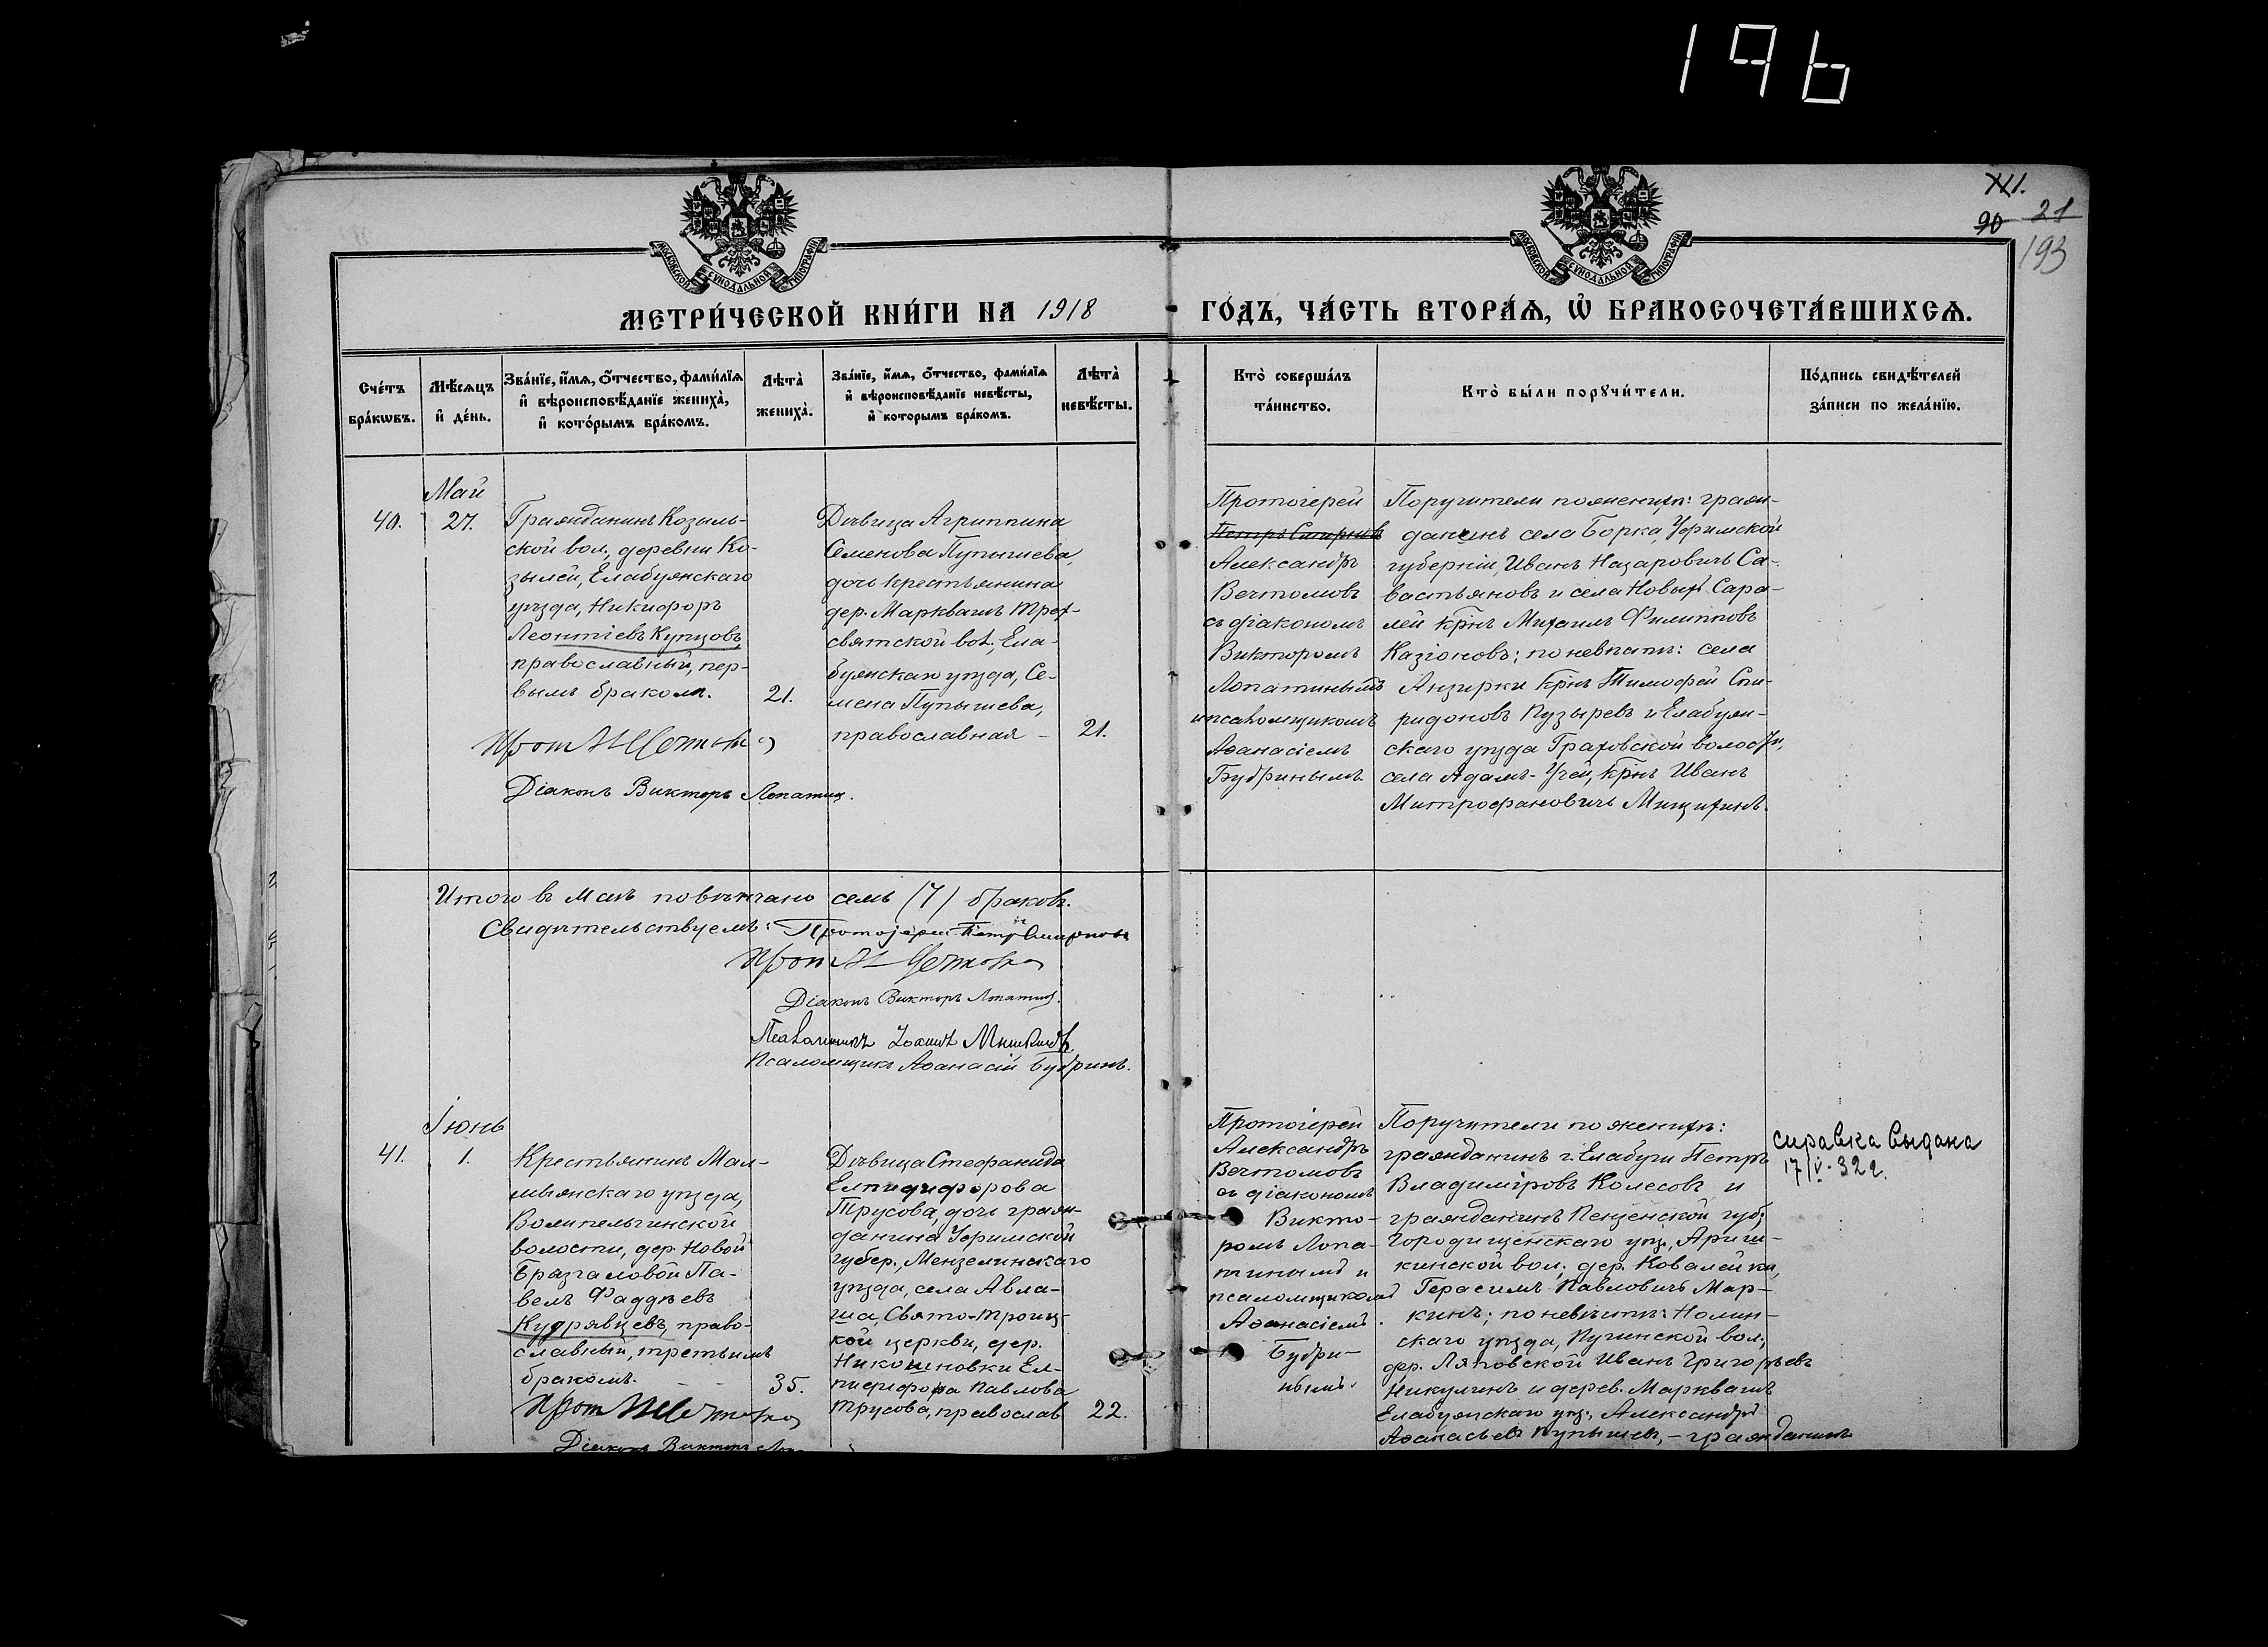 196
XII.
90 21
193
МОСКОВСКОЙ СѴНОДАЛЬНОЙ ТИПОГРАФІИ
МОСКОВСКОЙ СѴНОДАЛЬНОЙ ТИПОГРАФІИ
МЕТРИ́ЧЕСКОЙ КНИ́ГИ НА 1918 ГО́ДЪ, ЧА́СТЬ ВТОРА́Я, Ѽ БРАКОСОЧЕТА́ВШИХСЯ.
Сче́тъ бра́кѡвъ.
Мѣ́сяцъ и҆ де́нь.
Зва́нїе, и҆́мя, о҆́тчество, фами́лїя и҆ вѣроисповѣ́данїе жениха̀, и҆ кото́рымъ бра́комъ.
Лѣта̀ жениха̀.
Зва́нїе, и҆́мя, о҆́тчество, фами́лїя и҆ вѣроисповѣ́данїе невѣ́сты, и҆ которымъ бра́комъ.
Лѣта̀ невѣ́сты.
Кто̀ соверша́лъ та́инство.
Кто̀ бы́ли порꙋчи́тели.
По́дпись свидѣ́телей за́писи по жела́нїю.
40.
Май
27.
Гражданинъ Козыль-
ской вол., деревни Ко-
зылей, Елабужскаго
уѣзда, Никифоръ
Леонтіевъ Купцовъ,
православный, пер-
вымъ бракомъ.
21.
Дѣвица Агриппина
Семенова Пупышева,
дочь крестьянина
дер. Марквашъ Трех-
святской вол., Ела-
бужскаго уѣзда, Се-
мена Пупышева,
православная -
21.
Діаконъ Викторъ Лопатин.
Протоіерей
Петръ Смирновъ
Александръ
Вечтомовъ
съ діакономъ
Викторомъ
Лопатинымъ
и псаломщикомъ
Аѳанасіемъ
Будринымъ
Поручители по женихѣ: граж-
данинъ села Борка, Уфимской
губерніи, Иванъ Назаровичъ Са-
вастьяновъ и села Новыхъ Сара-
лей крнъ Михаилъ Филипповъ
Казіоновъ; по невѣстѣ: села
Анзирки крнъ Тимофей Спи-
ридоновъ Пузыревъ и Елабуж-
скаго уѣзда Граховской волости,
села Адамъ-Учей, крнъ Иванъ
Митрофановичъ Мищихинъ.
Итого въ маѣ повѣнчано семь (7) браковъ.
Свидѣтельствуемъ: Протоіерей Петръ Смирновъ
Діаконъ Викторъ Лопатин.
Псаломщикъ Аѳанасій Будринъ.
41.
Іюнь
1.
Крестьянинъ Мал-
мыжскаго уѣзда,
Волипельгинской
волости, дер. Новой
Брызгаловой Па-
велъ Фаддѣевъ
Кудрявцевъ, право-
славный, третьимъ
бракомъ. - -
35.
Дѣвица Стефанида
Елпидифорова
Трусова, дочь граж-
данина Уфимской
губер., Мензелинскаго
уѣзда, села Авла-
ша, Свято-Троиц-
кой церкви, дер.
Никошновки Ел-
пидифора Павлова
Трусова, православ
22.
Діаконъ Викторъ Лоп
Протоіерей
Александръ
Вечтомовъ
съ діакономъ
Викто-
ромъ Лопа-
тинымъ и
псаломщикомъ
Аѳанасіемъ
Будри-
нымъ.
Поручители по женихѣ:
гражданинъ г. Елабуги Петръ
Владиміровъ Колесовъ и
гражданинъ Пензенской губ.
Городищенскаго уѣз., Ариш-
кинской вол., дер. Ковалейки,
Герасимъ Павловичъ Мар-
кинъ; по невѣстѣ: Нолин-
скаго уѣзда, Кучинской вол.,
дер. Ляповской Иванъ Григорьевъ
Никулинъ и дерев. Марквашъ
Елабужскаго уѣз., Александръ
Аѳанасьевъ Пупышевъ, - гражданинъ
справка выдана
17/V-32г.